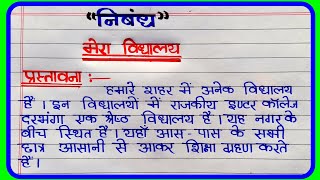 "निबंध"
मेरा विद्यालय
प्रस्तावना :—
हमारे शहर में अनेक विद्यालय
हैं। इन विद्यालयों में राजकीय इण्टर कॉलेज
दरभंगा एक श्रेष्ठ विद्यालय है। यह नगर के
बीच स्थित है। यहाँ आस-पास के सभी
छात्र आसानी से आकर शिक्षा ग्रहण करते
हैं।